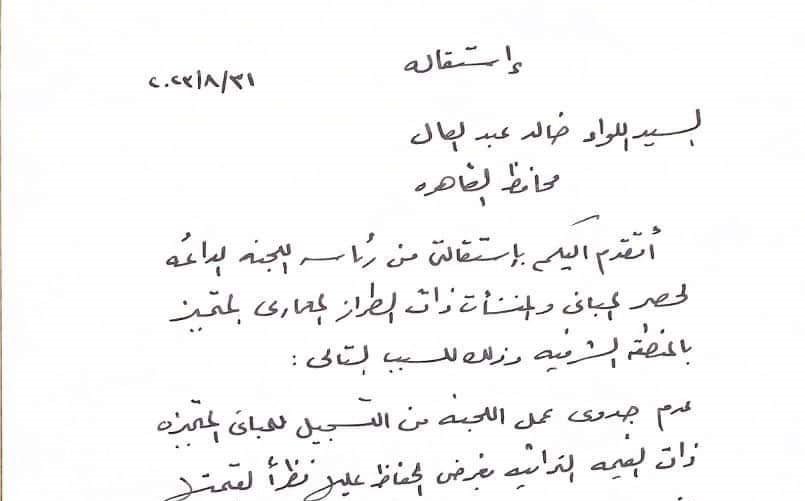 إستقاله
٢٠٢٣/٨/٣١
السيد اللواء خالد عبد العال
محافظ القاهره
أتقدم اليكم بإستقالتى من رئاسه اللجنه الدائمه
لحصر المبانى والمنشأت ذات الطراز المعمارى المتميز
بالمنطقه الشرقيه وذلك للسبب التالى :
عدم جدوى عمل اللجنه من التسجيل للمبانى المتميزه
ذات القيمه التراثيه بغرض الحفاظ عليها نظراً لقيمتها